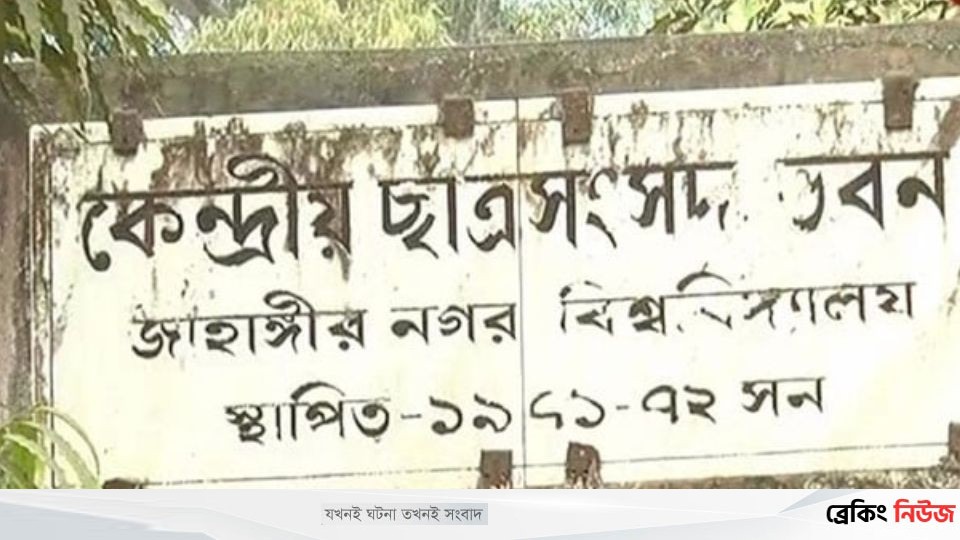 কেন্দ্রীয় ছাত্রসংসদ ভবন
জাহাঙ্গীর নগর বিশ্ববিদ্যালয়
স্থাপিত-১৯৭১-৭২ সন
যখনই ঘটনা তখনই সংবাদ
ব্রেকিং নিউজ